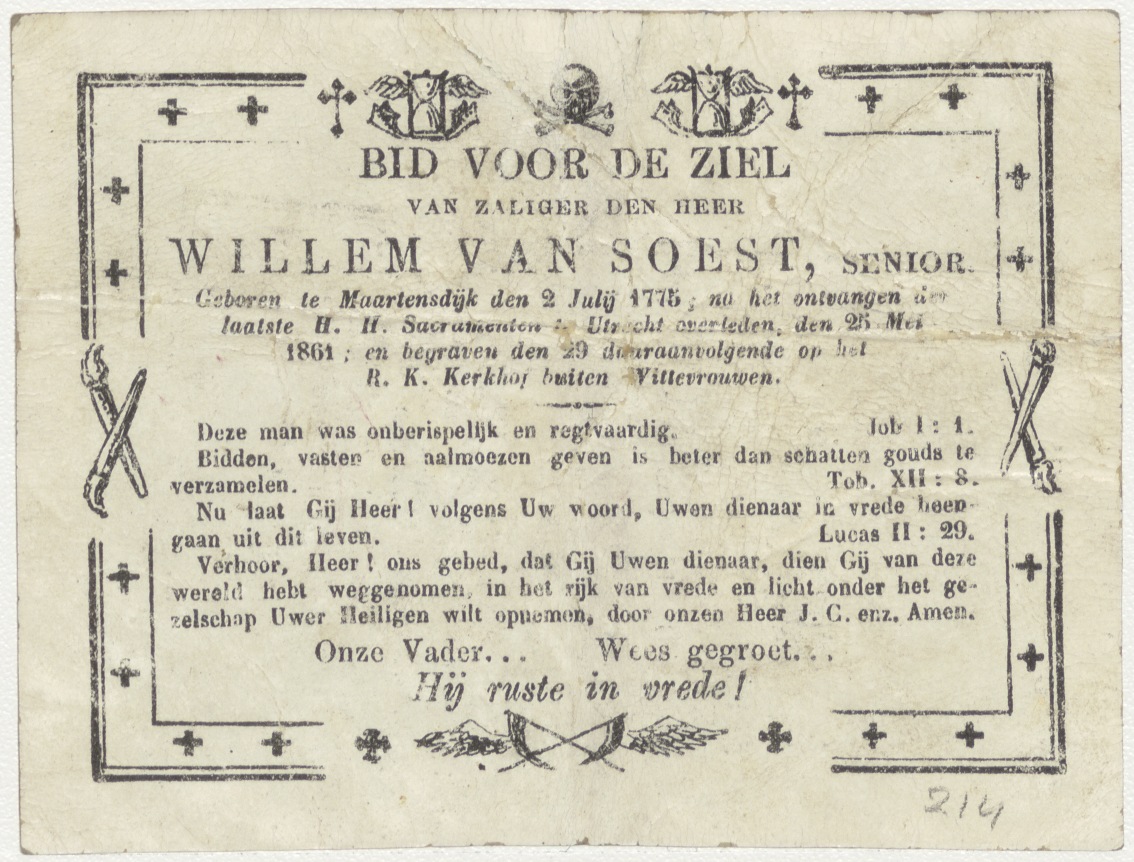 BID VOOR DE ZIEL
VAN ZALIGER DEN HEER
WILLEM VAN SOEST, SENIOR.
Geboren te Maartensdijk den 2 Julij 1775; na het ontvangen der
laatste H. H. Sacramenten te Utrecht overleden, den 25 Mei
1861; en begraven den 29 daaraanvolgende op het
R. K. Kerkhof buiten Wittevrouwen.
Deze man was onberispelijk en regtvaardig. Job I: 1.
Bidden, vasten en aalmoezen geven is beter dan schatten gouds te
verzamelen. Tob. XII: 8.
Nu laat Gij Heer! volgens Uw woord, Uwen dienaar in vrede heen-
gaan uit dit leven. Lucas II: 29.
Verhoor, Heer! ons gebed, dat Gij Uwen dienaar, dien Gij van deze
wereld hebt weggenomen, in het rijk van vrede en licht onder het ge-
zelschap Uwer Heiligen wilt opnemen, door onzen Heer J. C. enz. Amen.
Onze Vader... Wees gegroet...
Hij ruste in vrede!
214